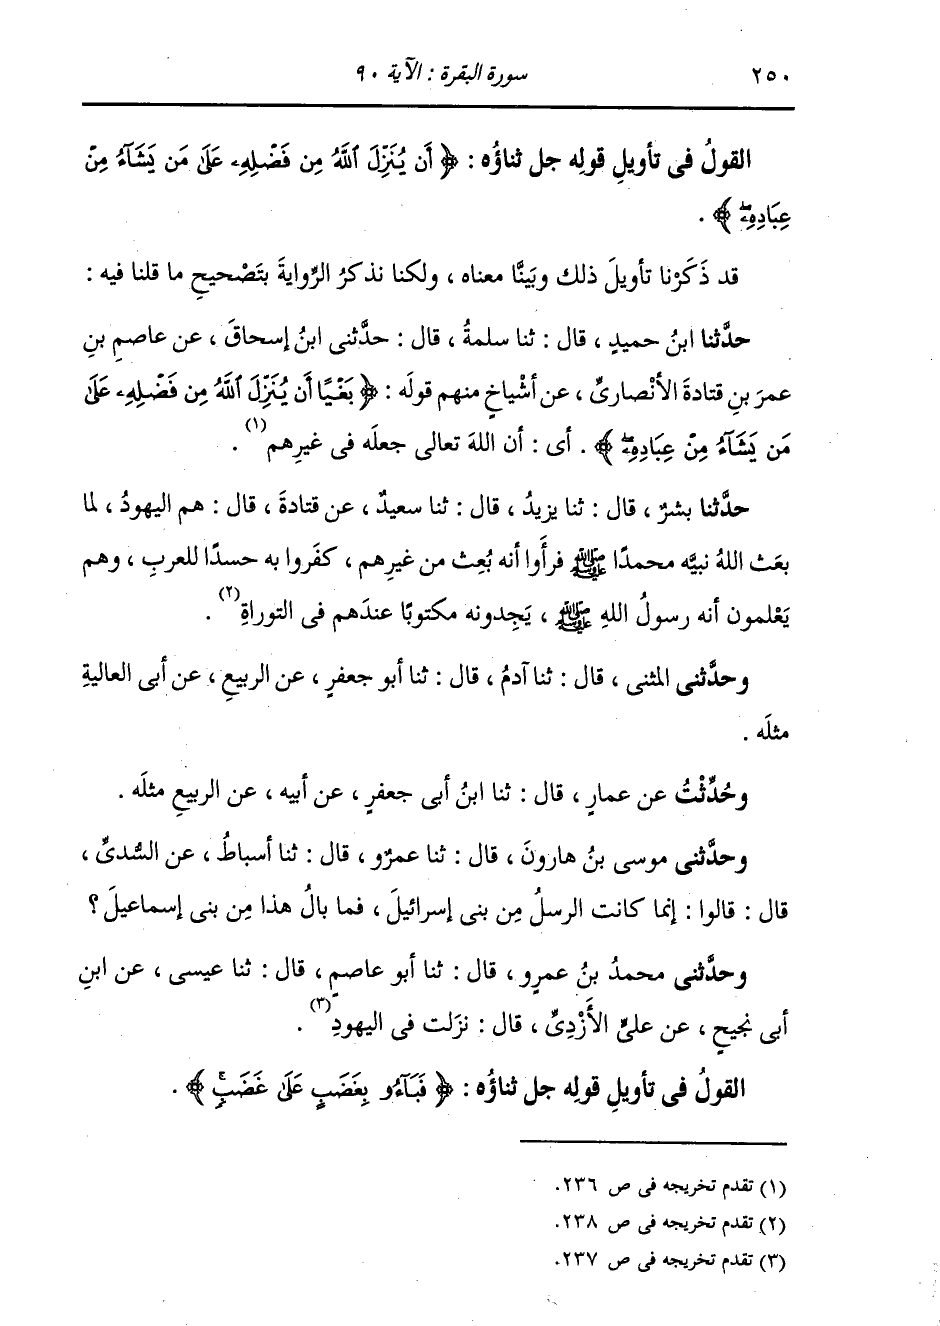 ٢٥٠ سورة البقرة : الآية ٩٠
القولُ فى تأويلِ قولِه جل ثناؤُه : ﴿ أَن يُنَزِّلَ ٱللَّهُ مِن فَضْلِهِۦ عَلَىٰ مَن يَشَآءُ مِنْ
عِبَادِهِۦۖ ﴾ .
قد ذَكَرْنا تأويلَ ذلك وبَيَنَّا معناه ، ولكنا نذكرُ الرِّوايةَ بتَصْحيحِ ما قلنا فيه :
حدَّثنا ابنُ حميدٍ ، قال : ثنا سلمةُ ، قال : حدَّثنى ابنُ إسحاقَ ، عن عاصمِ بنِ
عمرَ بنِ قتادةَ الأنْصارىِّ ، عن أشْياخٍ منهم قولَه : ﴿ بَغْيًا أَن يُنَزِّلَ ٱللَّهُ مِن فَضْلِهِۦ عَلَىٰ
مَن يَشَآءُ مِنْ عِبَادِهِۦۖ ﴾ . أى : أن اللهَ تعالى جعلَه فى غيرِهم (١) .
حدَّثنا بشرٌ ، قال : ثنا يزيدُ ، قال : ثنا سعيدٌ ، عن قتادةَ ، قال : هم اليهودُ ، لما
بعَث اللهُ نبيَّه محمدًا ﷺ فرأَوا أنه بُعِث من غيرِهم ، كفَروا به حسدًا للعربِ ، وهم
يَعْلمون أنه رسولُ اللهِ ﷺ ، يَجِدونه مكتوبًا عندَهم فى التوراةِ (٢) .
وحدَّثنى المثنى ، قال : ثنا آدمُ ، قال : ثنا أبو جعفرٍ ، عن الربيعِ ، عن أبى العاليةِ
مثلَه .
وحُدِّثْتُ عن عمارٍ ، قال : ثنا ابنُ أبى جعفرٍ ، عن أبيه ، عن الربيعِ مثلَه .
وحدَّثنى موسى بنُ هارونَ ، قال : ثنا عمرٌو ، قال : ثنا أسباطُ ، عن السُّدىِّ ،
قال : قالوا : إنما كانت الرسلُ مِن بنى إسرائيلَ ، فما بالُ هذا مِن بنى إسماعيلَ ؟
وحدَّثنى محمدُ بنُ عمرٍو ، قال : ثنا أبو عاصمٍ ، قال : ثنا عيسى ، عن ابنِ
أبى نجيحٍ ، عن علىٍّ الأَزْدىِّ ، قال : نزَلت فى اليهودِ (٣) .
القولُ فى تأويلِ قولِه جل ثناؤُه : ﴿ فَبَآءُو بِغَضَبٍ عَلَىٰ غَضَبٍۚ ﴾ .
(١) تقدم تخريجه فى ص ٢٣٦.
(٢) تقدم تخريجه فى ص ٢٣٨.
(٣) تقدم تخريجه فى ص ٢٣٧.